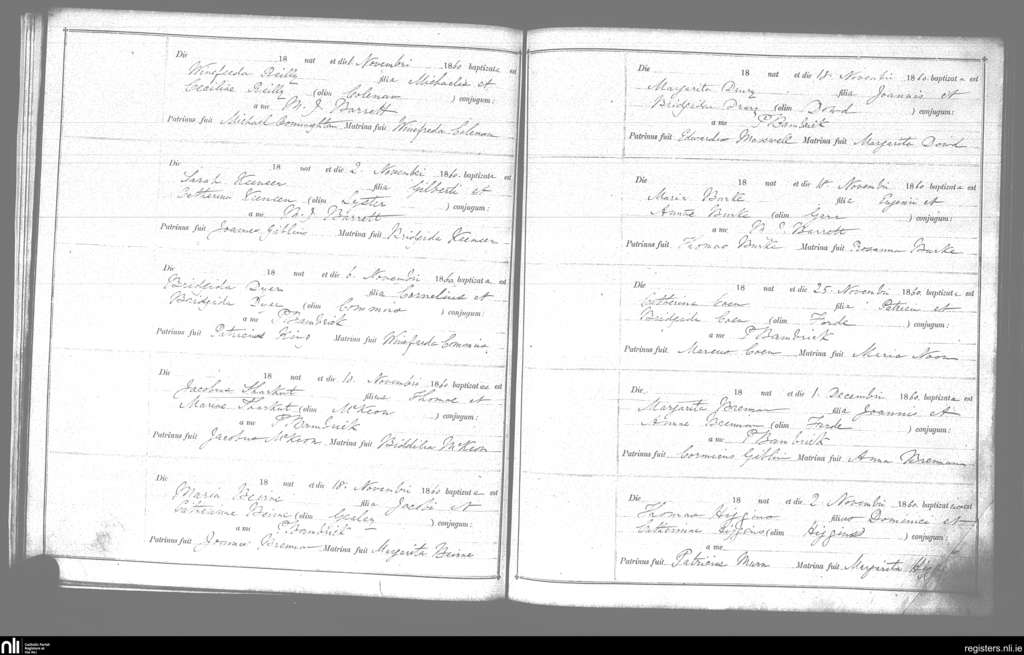 Die 18 nat et die 1 Novembri 1860 baptizata est
Winefreda Reilly filia Michaelis et
Ceciliae Reilly (olim Colenan ) conjugum:
a me M. J. Barrett
Patrinus fuit Michael Connughton Matrina fuit Winefreda Colenan
Die 18 nat et die 2 Novembri 1860 baptizata est
Sarah Keeneen filia Gilberti et
Catherina Keeneen (olim Lyster ) conjugum:
a me M. J. Barrett
Patrinus fuit Joannes Giblin Matrina fuit Bridgida Keeneen
Die 18 nat et die 6 Novembri 1860 baptizata est
Bridgida Dyer filia Cornelius et
Bridgida Dyer (olim Commons ) conjugum:
a me P Bambrick
Patrinus fuit Patricius King Matrina fuit Winefreda Commons
Die 18 nat et die 13 Novembri 1860 baptizatus est
Jacobus Sharkut filius Thomae et
Mariae Sharkut (olim McKeon ) conjugum:
a me P Bambrick
Patrinus fuit Jacobus McKeon Matrina fuit Biddilia McKeon
Die 18 nat et die 18 Novembri 1860 baptizata est
Maria Beirne filia Jacobi et
Catherinae Beirne (olim ) conjugum:
a me P Bambrick
Patrinus fuit Joannes Brennan Matrina fuit Margarita Beirne
Die 18 nat et die 18 Novembri 1860 baptizata est
Margarita Drury filia Joannis et
Bridgida Drury (olim Dowd ) conjugum:
a me P Bambrick
Patrinus fuit Edwardus Maxwell Matrina fuit Margarita Dowd
Die 18 nat et die 18 Novembri 1860 baptizata est
Maria Burke filia Eugenii et
Annae Burke (olim Gera ) conjugum:
a me M. J. Barrett
Patrinus fuit Thomas Burke Matrina fuit Rosanna Burke
Die 18 nat et die 25 Novembri 1860 baptizata est
Catherina Coen filia Patricii et
Bridgida Coen (olim Forde ) conjugum:
a me P Bambrick
Patrinus fuit Marcus Coen Matrina fuit Maria Noon
Die 18 nat et die 1 Decembri 1860 baptizata est
Margarita Brennan filia Joannis et
Annae Brennan (olim Forde ) conjugum:
a me P Bambrick
Patrinus fuit Cormicus Giblin Matrina fuit Anna Bremann
Die 18 nat et die 2 Novembri 1860 baptizatus est
Thomas Higgins filius Domenici et
Catherinae Higgins (olim Higgins ) conjugum:
a me
Patrinus fuit Patricius Murn Matrina fuit Margarita
nli Catholic Parish Registers at the NLI
registers.nli.ie